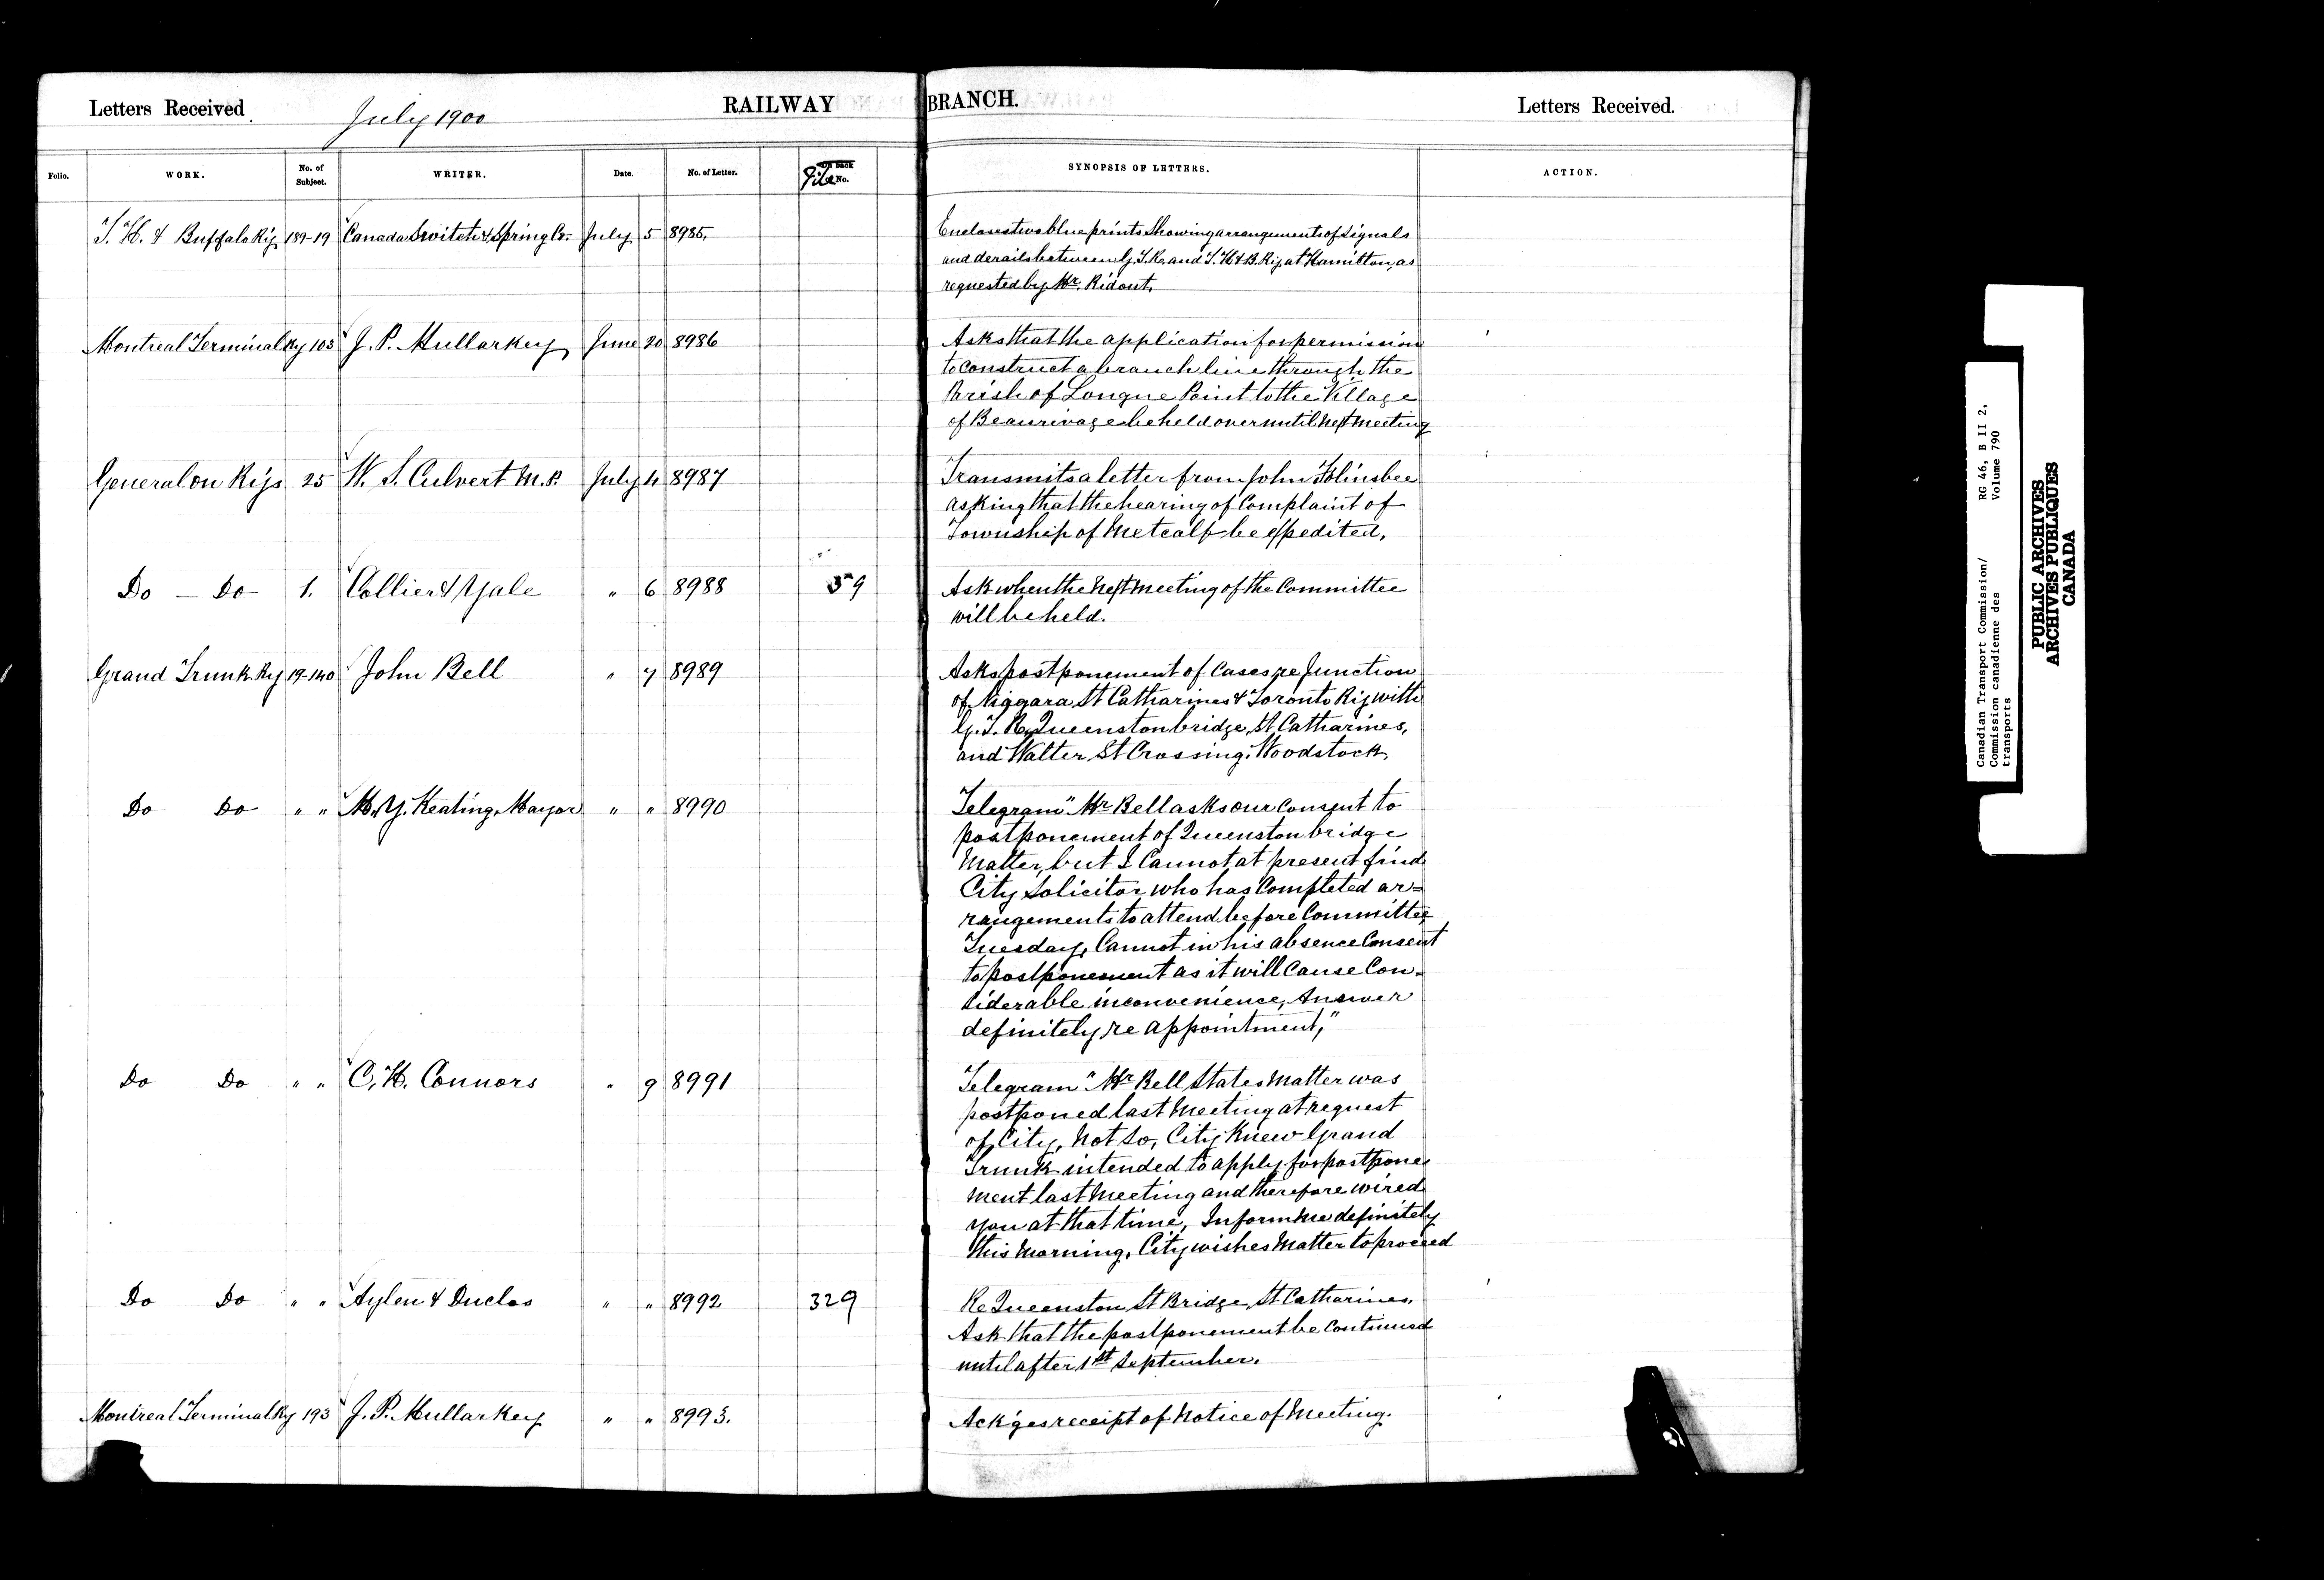 Letters Received July 1900 RAILWAY BRANCH. Letters Received.
Folio. WORK. No. of Subject. WRITER. Date. No. of Letter. File No. SYNOPSIS OF LETTERS. ACTION.
T. H. & Buffalo Ry 189-19 Canada Switch & Spring Co. July 5 8985. Encloses two blue prints showing arrangements of signals
and derails between G. T. R. and T. H & B. Ry at Hamilton, as
requested by Mr. Ridout.
Montreal Terminal Ry 103 J. P. Mullarkey June 20 8986 Asks that the application for permission
to construct a branch line through the
Parish of Longue Point to the Village
of Beaurivage be held over until next meeting
General on Rys 25 W. S. Culvert M.P. July 4 8987 Transmits a letter from John Folinsbee
asking that the hearing of Complaint of
Township of Metcalf be expedited.
Do — Do 1. Collier & Yale " 6 8988 59 Ask when the next meeting of the Committee
will be held.
Grand Trunk Ry 19-140 John Bell " 7 8989 Asks postponement of Cases, re Junction
of Niagara St Catharines & Toronto Ry with
G. T. Ry Queenston bridge, St Catharines,
and Walter St Crossing, Woodstock.
Do Do " " M. Y. Keating, Mayor " " 8990 Telegram "Mr Bell asks our Consent to
postponement of Queenston bridge
Matter, but I Cannot at present find
City Solicitor who has Completed ar=
rangements to attend before Committee,
Tuesday, Cannot in his absence Consent
to postponement as it will Cause Con-
siderable inconvenience, Answer
definitely re appointment,"
Do Do " " C. H. Connors " 9 8991 Telegram "Mr Bell States Matter was
postponed last Meeting at request
of City, Not so, City Knew Grand
Trunk intended to apply for postpone
ment last Meeting and therefore wired
you at that time, Inform me definitely
this Morning, City wishes Matter to proceed
Do Do " " Aylen & Duclos " " 8992 329 Re Queenston St Bridge, St Catharines.
Ask that the postponement be Continued
until after 1st September.
Montreal Terminal Ry 193 J. P. Mullarkey " " 8993. Ack'ges receipt of Notice of Meeting.
Canadian Transport Commission/ RG 46, B II 2,
Commission canadienne des Volume 790
transports
PUBLIC ARCHIVES
ARCHIVES PUBLIQUES
CANADA